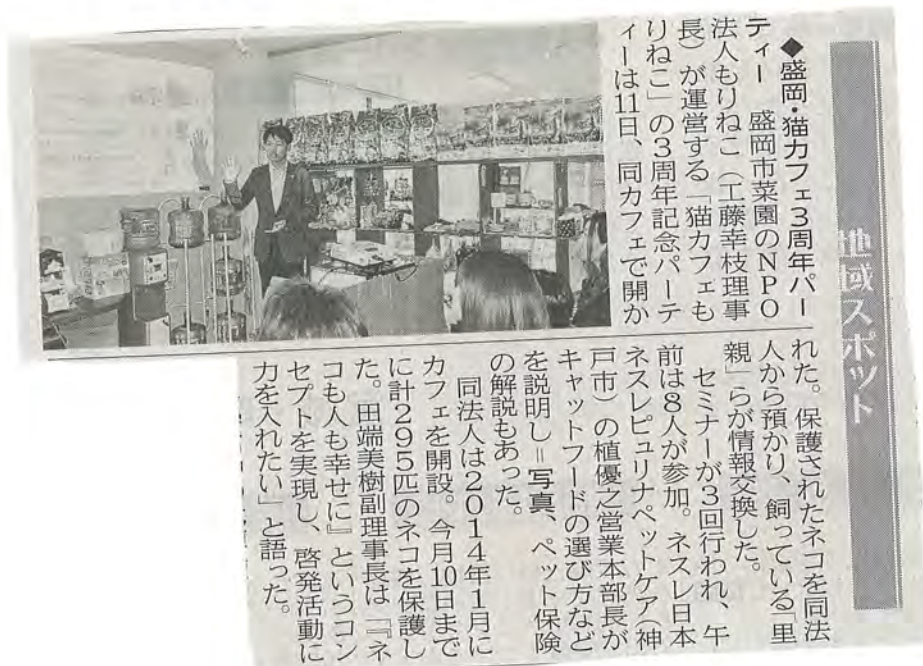 地域スポット
◆盛岡・猫カフェ3周年パー
ティー　盛岡市菜園のNPO
法人もりねこ（工藤幸枝理事
長）が運営する「猫カフェも
りねこ」の3周年記念パーテ
ィーは11日、同カフェで開か
れた。保護されたネコを同法
人から預かり、飼っている「里
親」らが情報交換した。
セミナーが3回行われ、午
前は8人が参加。ネスレ日本
ネスレピュリナペットケア（神
戸市）の植優之営業本部長が
キャットフードの選び方など
を説明＝写真、ペット保険
の解説もあった。
同法人は2014年1月に
カフェを開設。今月10日まで
に計295匹のネコを保護し
た。田端美樹副理事長は「『ネ
コも人も幸せに』というコン
セプトを実現し、啓発活動に
力を入れたい」と語った。